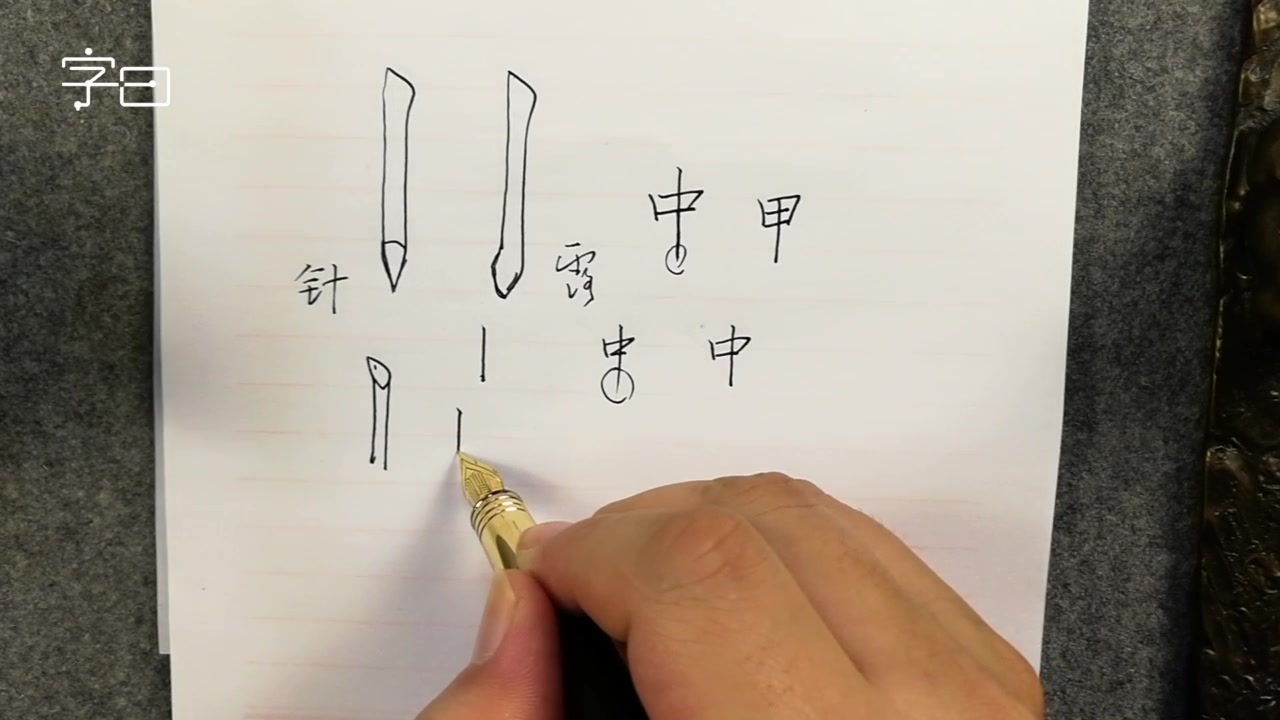 字曰
中 甲
针 露
中 中